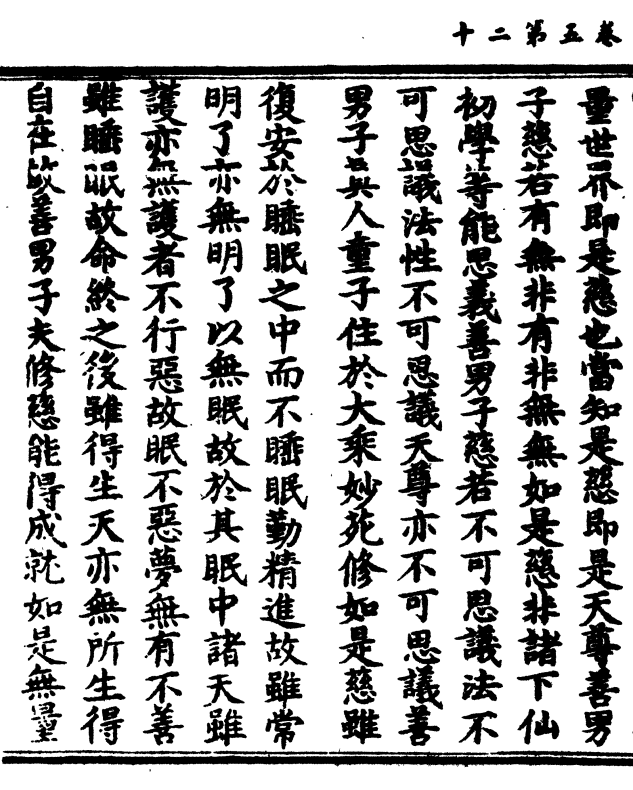 卷五第二十
量世界即是慈也當知是慈即是天尊善男
子慈若有無非有非無無如是慈非諸下仙
初學等能思義善男子慈若不可思議法不
可思議法性不可思議天尊亦不可思議善
男子具人童子住於大乘妙苑修如是慈雖
復安於睡眠之中而不睡眠勤精進故雖常
明了亦無明了以無眠故於其眠中諸天雖
護亦無護者不行惡故眠不惡夢無有不善
雖睡眠故命終之後雖得生天亦無所生得
自在故善男子夫修慈能得成就如是無量